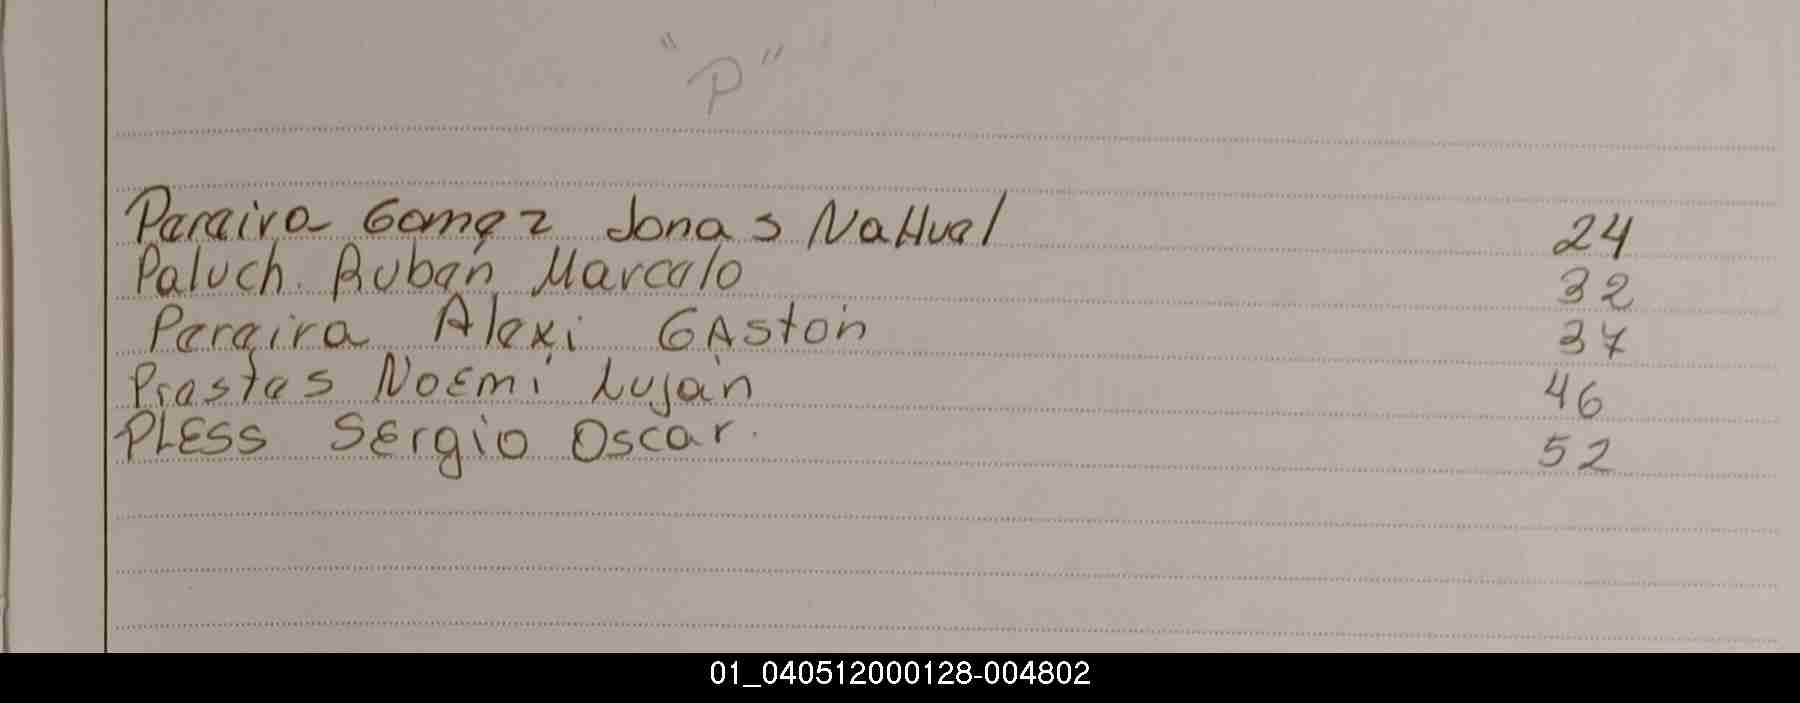 "P"
Pereira Gomez Jonas NaHuel 24
Paluch. Ruben Marcelo 32
Pereira Alexi GAstón 37
Prestes NoEmi Luján 46
PLESS SErgio Oscar. 52
01_040512000128-004802